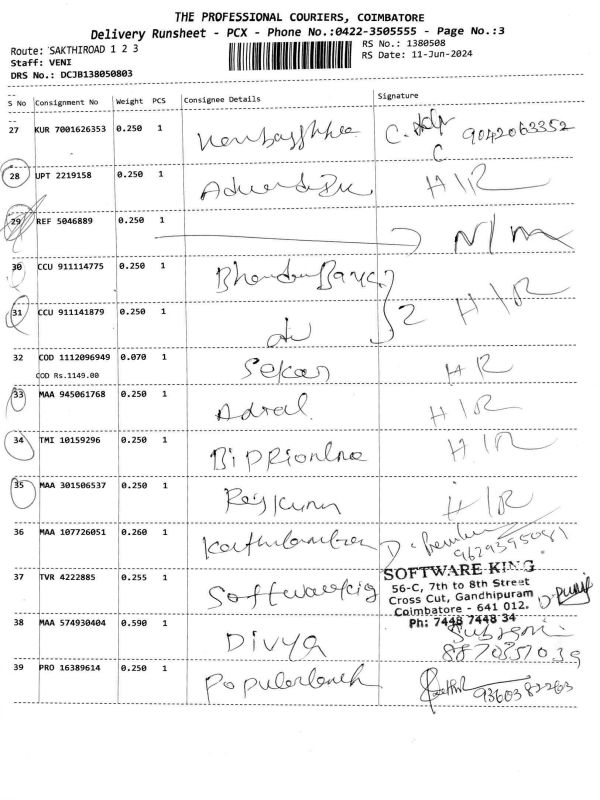 THE PROFESSIONAL COURIERS, COIMBATORE
Delivery Runsheet - PCX - Phone No.:0422-3505555 - Page No.:3
Route: SAKTHIROAD 1 2 3
RS No.: 1380508
Staff: VENI
RS Date: 11-Jun-2024
DRS No.: DCJB138050803
S No Consignment No Weight PCS Consignee Details Signature
27 KUR 7001626353 0.250 1 9042063352
28 UPT 2219158 0.250 1 H/R
29 REF 5046889 0.250 1 N/m
30 CCU 911114775 0.250 1
31 CCU 911141879 0.250 1 2 H/R
32 COD 1112096949 0.070 1 Sekar HR
COD Rs.1149.00
33 MAA 945061768 0.250 1 H/R
34 TMI 10159296 0.250 1 H/R
35 MAA 301506537 0.250 1 H/R
36 MAA 107726051 0.260 1
37 TVR 4222885 0.255 1
SOFTWARE KING
56-C, 7th to 8th Street
Cross Cut, Gandhipuram
Coimbatore - 641 012.
Ph: 7448 7448 34
38 MAA 574930404 0.590 1 Divya
39 PRO 16389614 0.250 1